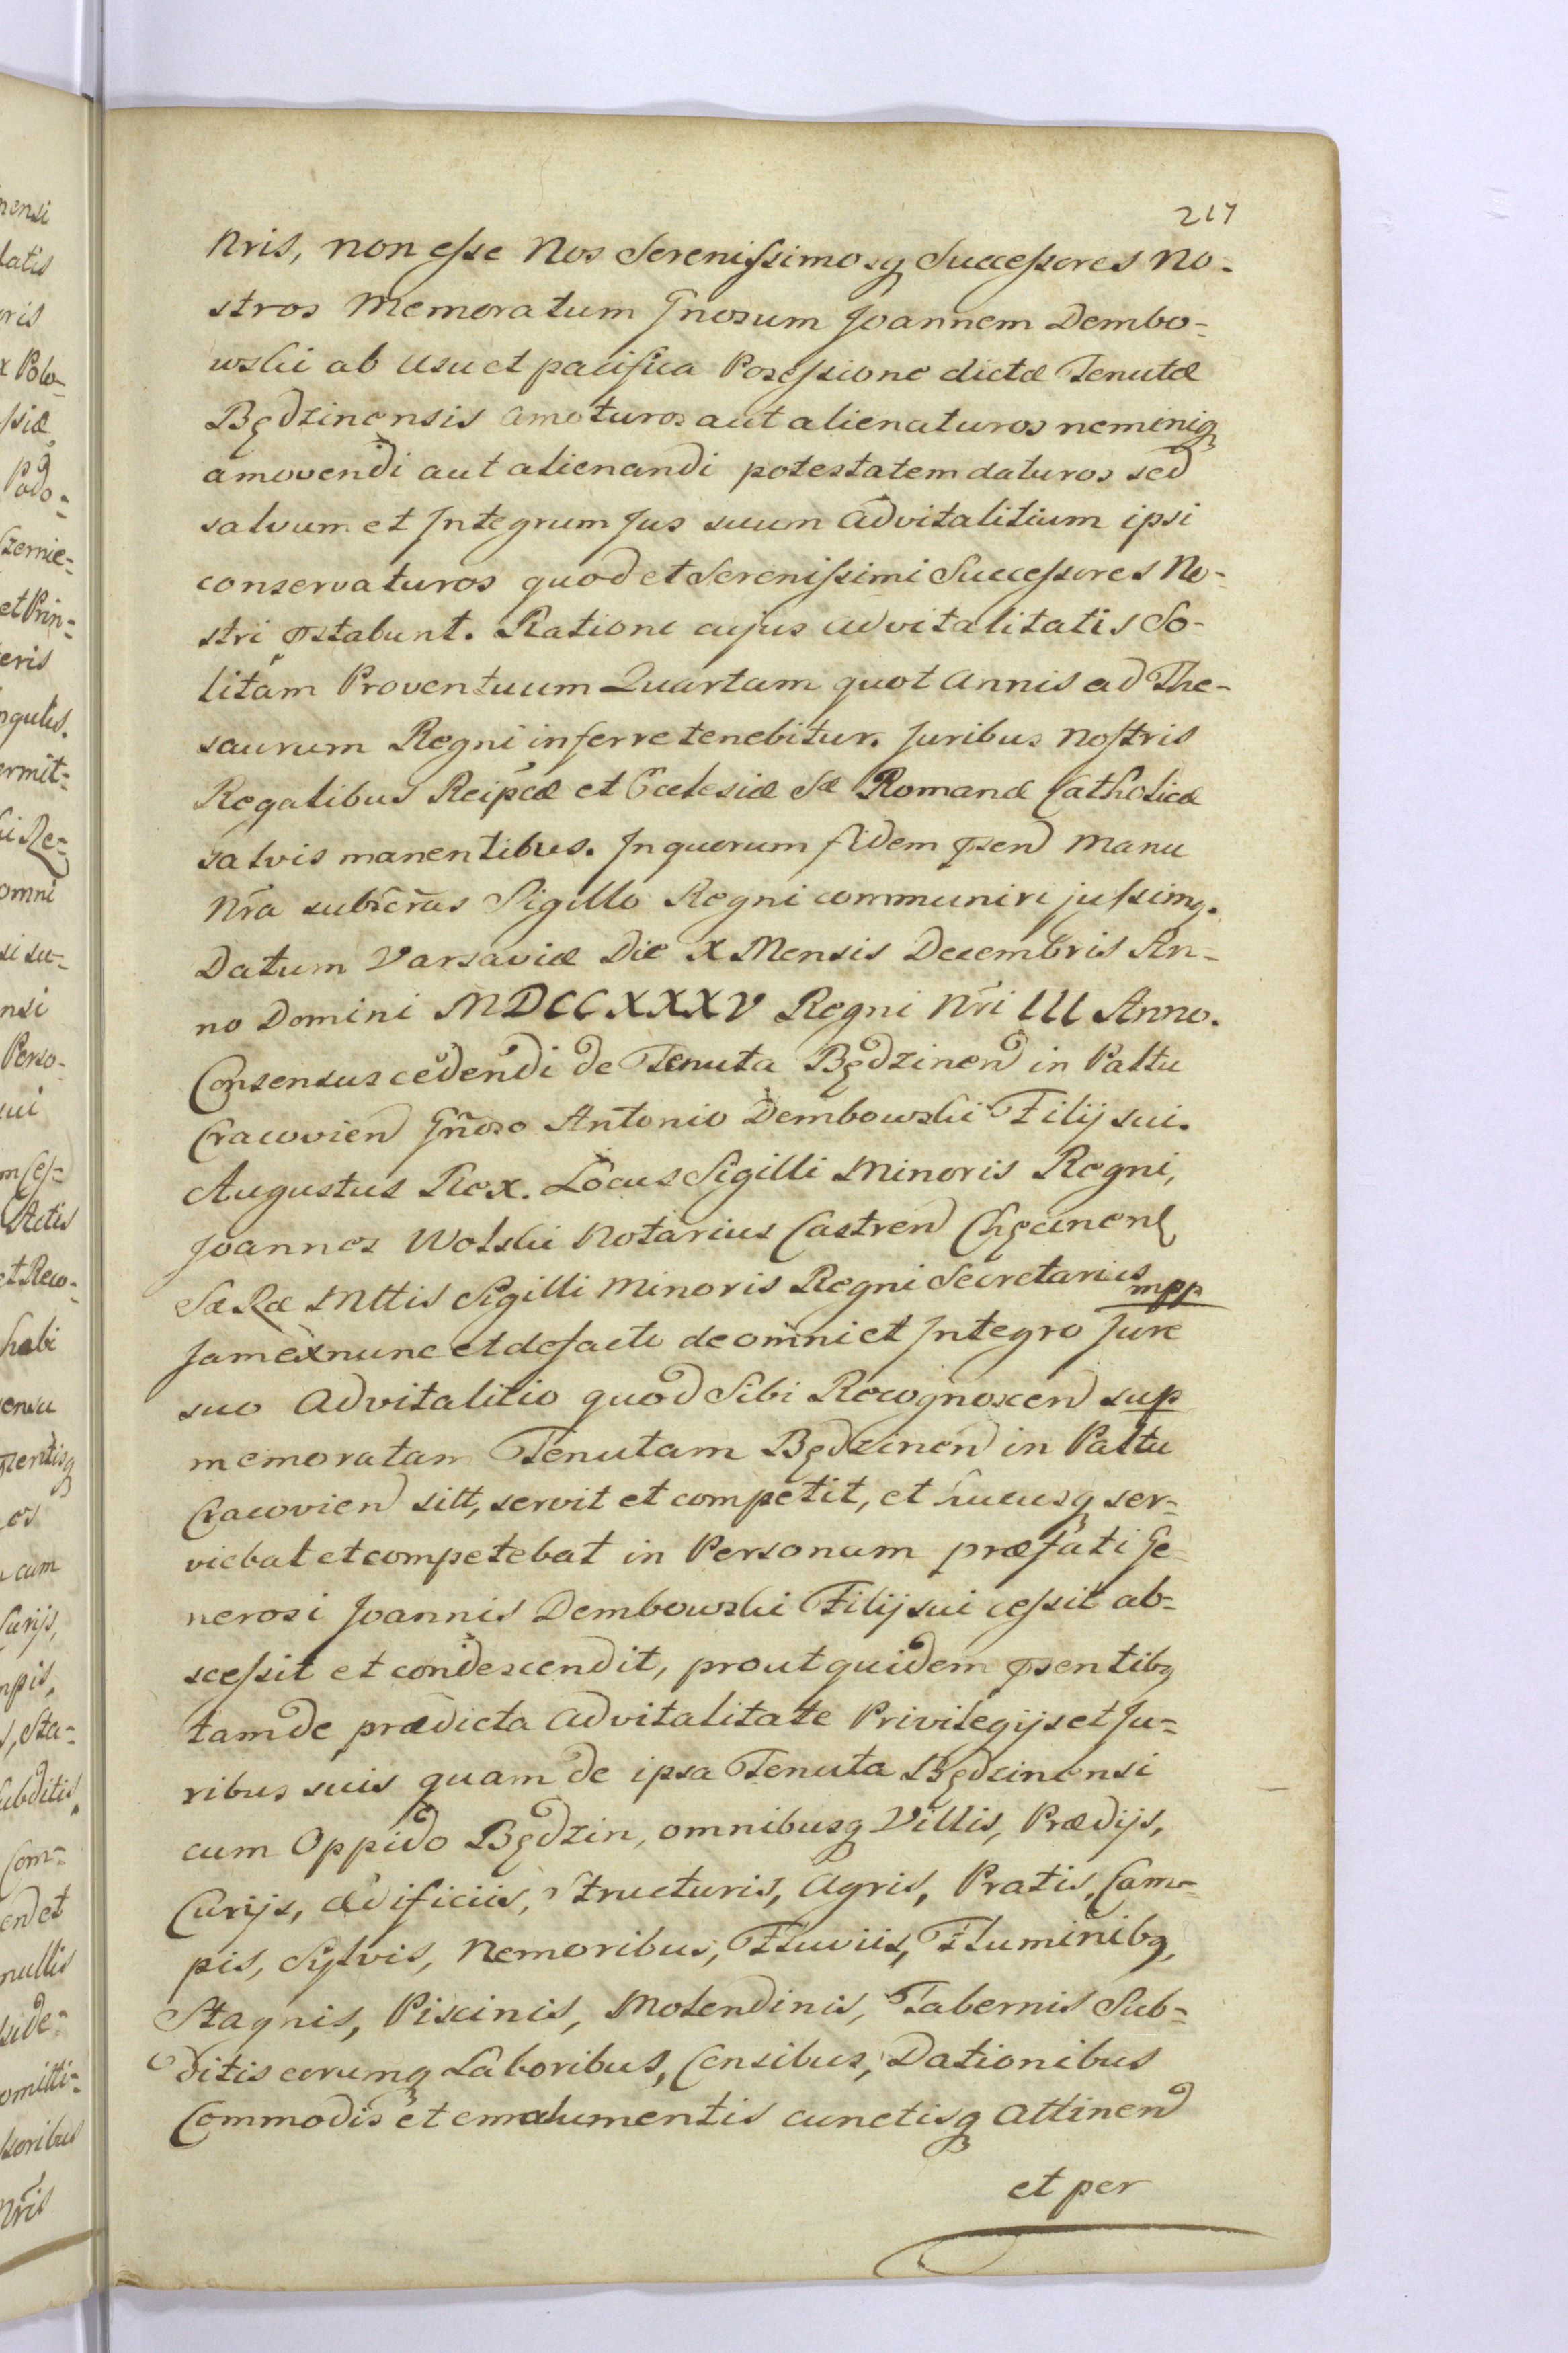 217
Nris, non esse Nos Serenissimosq Successores No-
stros Memoratum Gnosum Joannem Dembo=
wski ab usu et pacifica Possessione dictæ Tenutæ
Będzinensis amoturos aut alienaturos neminiq
amovendi aut alienandi potestatem daturos sed
salvum et Integrum Jus suum advitalitium ipsi
conservaturos quod et Serenissimi Successores No-
stri pstabunt. Ratione cujus advitalitatis So-
litam Proventuum Quartam quot annis ad The-
saurum Regni inferre tenebitur. Juribus nostris
Regalibus Reipcæ et Ecclesiæ Sæ Romanæ Catholicæ
salvis manentibus. In quorum fidem psen Manu
Nra subscras Sigillo Regni communiri jussimq.
Datum Varsaviæ Die X Mensis Decembris An-
no Domini MDCCXXXV Regni Nri III Anno.
Consensus cedendi de Tenuta Będzinen in Paltu
Cracovien Gnoso Antonio Dembowski Filij sui.
Augustus Rex. Locus Sigilli Minoris Regni,
Joannes Wolski Notarius Castren Chęcinen
Sæ Ræ Mttis Sigilli Minoris Regni Secretarius mpp
Jam ex nunc et de facto de omni et Integro Jure
suo Advitalitio quod Sibi Recognoscen sup
memoratam Tenutam Będzinen in Paltu
Cracovien sitt, servit et competit, et hucusq ser-
viebat et competebat in Personam præfati Ge
nerosi Joannis Dembowski Filij sui cessit ab-
scessit et condescendit, prout quidem psentibq
tam de prædicta Advitalitate Privilegijs et Ju=
ribus suis quam de ipsa Tenuta Będzinensi
cum Oppido Będzin, omnibusq Villis, Prædijs,
Curijs, ædificiis, Structuris, Agris, Pratis, Cam-
pis, Sylvis, Nemoribus, Fluviis, Fluminibq,
Stagnis, Piscinis, Molendinis, Tabernis Sub=
ditis eorumq Laboribus, Censibus, Dationibus
Commodis et emolumentis cunctisq attinen
et per